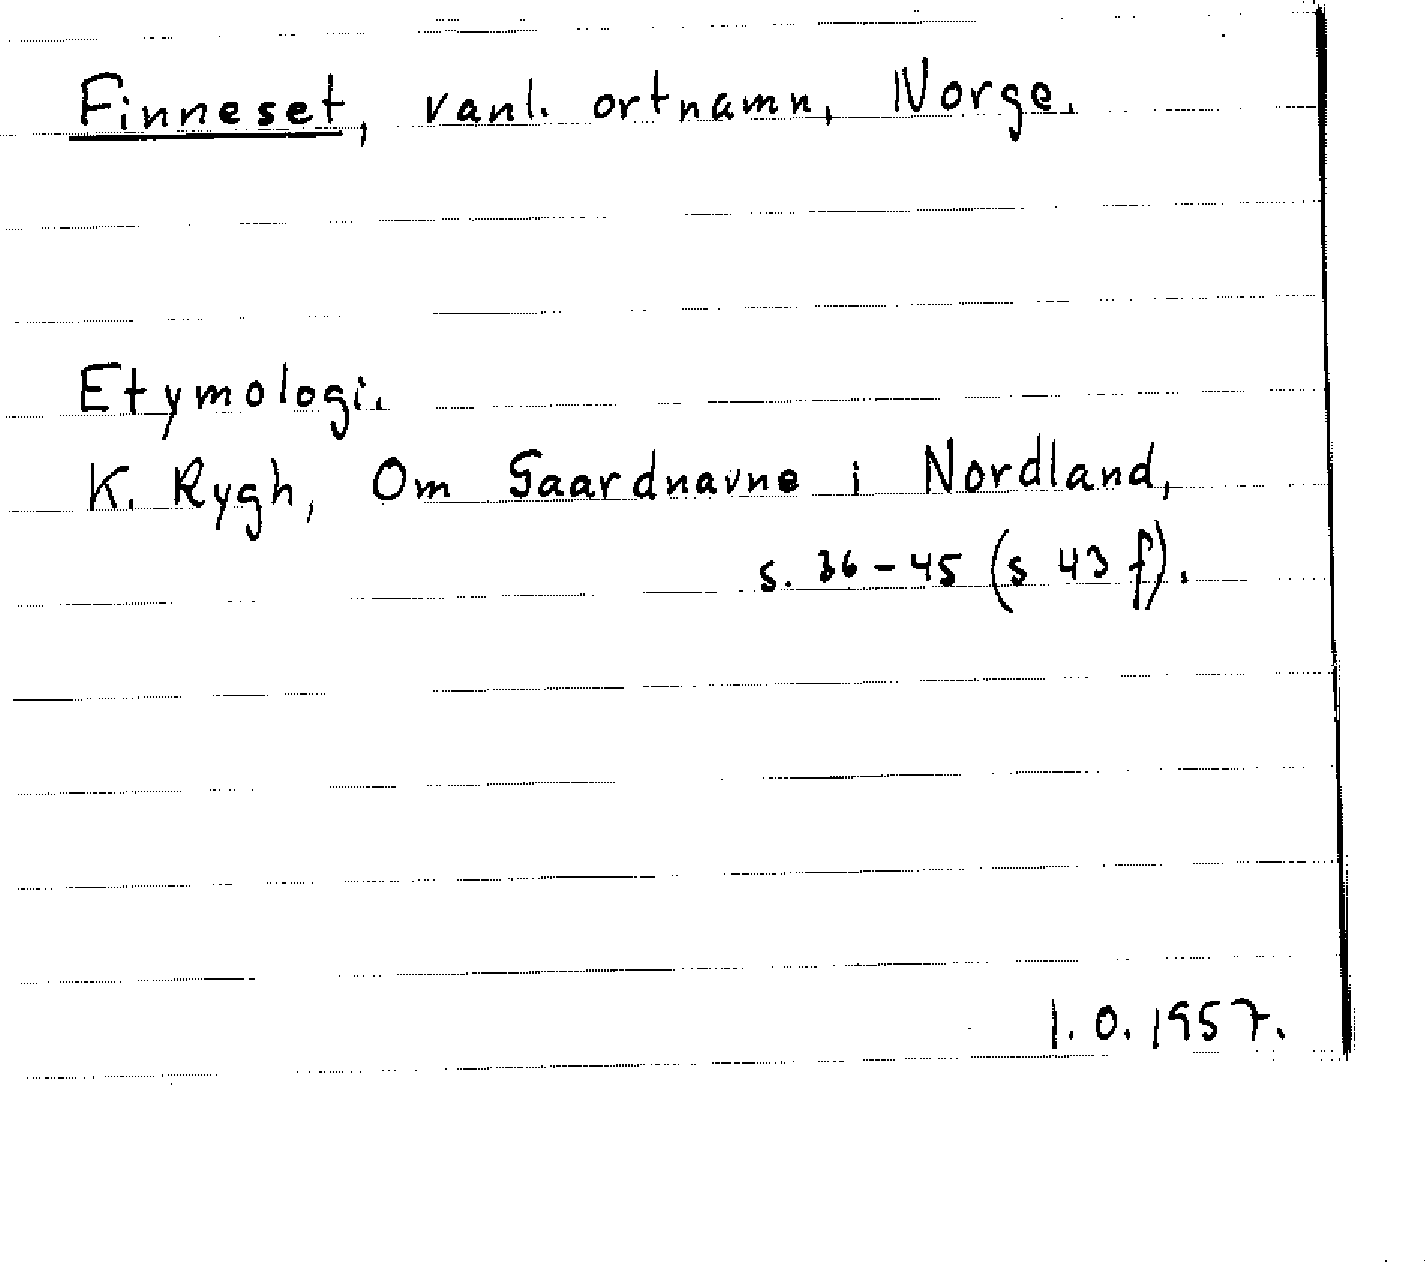 Finneset, vanl. ortnamn, Norge.
Etymologi.
K. Rygh, Om Gaardnavne i Nordland,
s. 36-45 (s 43 f).
1.0.1957.